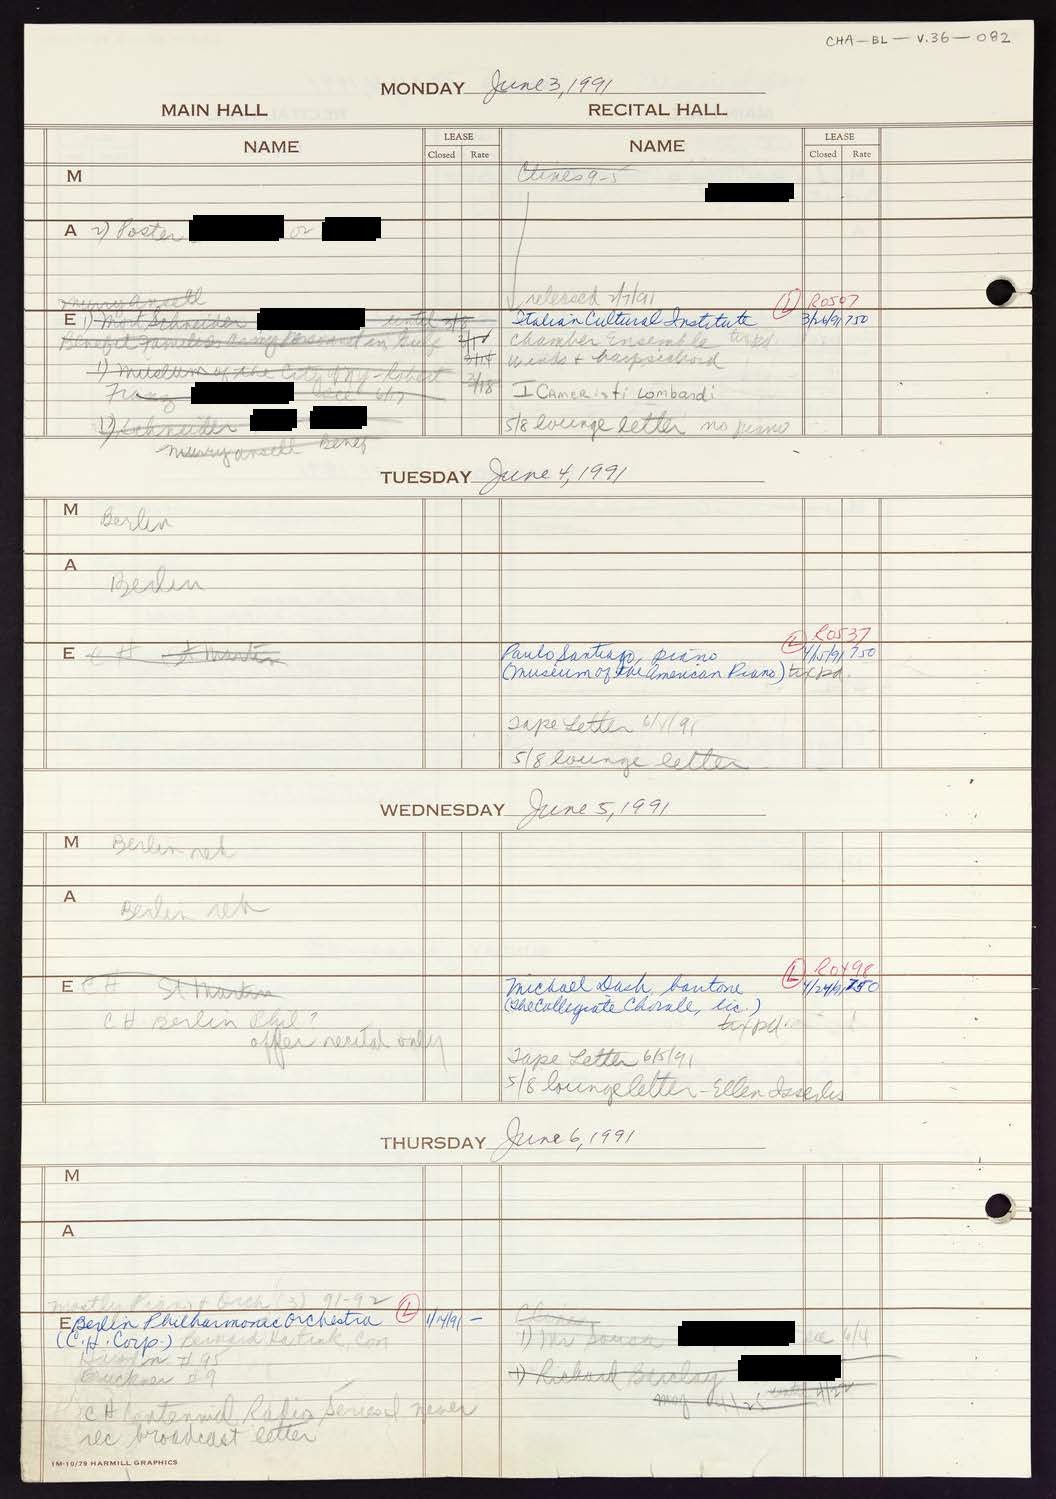 CHA-BL-V.36-082
MONDAY June 3, 1991
MAIN HALL
RECITAL HALL
NAME
LEASE
Closed Rate
NAME
LEASE
Closed Rate
M
Clines 9-5
A 2) Foster or
Murry Ansell
released 2/7/91
(L) R0507
E 1) Mort Schneider until 2/8
Benefit Families
2/14
1) Museum of the City of NY - Robert
2/18
Franz
1) Schneider
Murry Ansell Benef
Italian Cultural Institute 3/26/91 750
Chamber Ensemble txpd
winds + harpsichord
I Cameristi Lombardi
5/8 lounge letter no piano
TUESDAY June 4, 1991
M Berlin
A Berlin
E CH St Martin
(L) R0537
Paulo Santiago, piano 4/15/91 750
(Museum of the American Piano) txpd.
Tape Letter 6/1/91
5/8 lounge letter
WEDNESDAY June 5, 1991
M Berlin reh
A Berlin reh
E CH St Martin
CH Berlin Phil?
offer recital only
(L) R0498
Michael Dash, baritone 4/24/91 750
(The Collegiate Chorale, Inc.)
txpd.
Tape Letter 6/5/91
5/8 lounge letter - Ellen Isserlis
THURSDAY June 6, 1991
M
A
Mostly Piano + Orch (3) 91-92
E Berlin Philharmonic Orchestra (L) 1/14/91 -
(C.H. Corp.) Bernard Haitink, Con
Haydn #95
Bruckner #9
CH Centennial Radio Series never
rec broadcast letter
Clines
1) Mr Souca
1) Richard Barclay
4/25 until 4/22
1M-10/79 HARMILL GRAPHICS